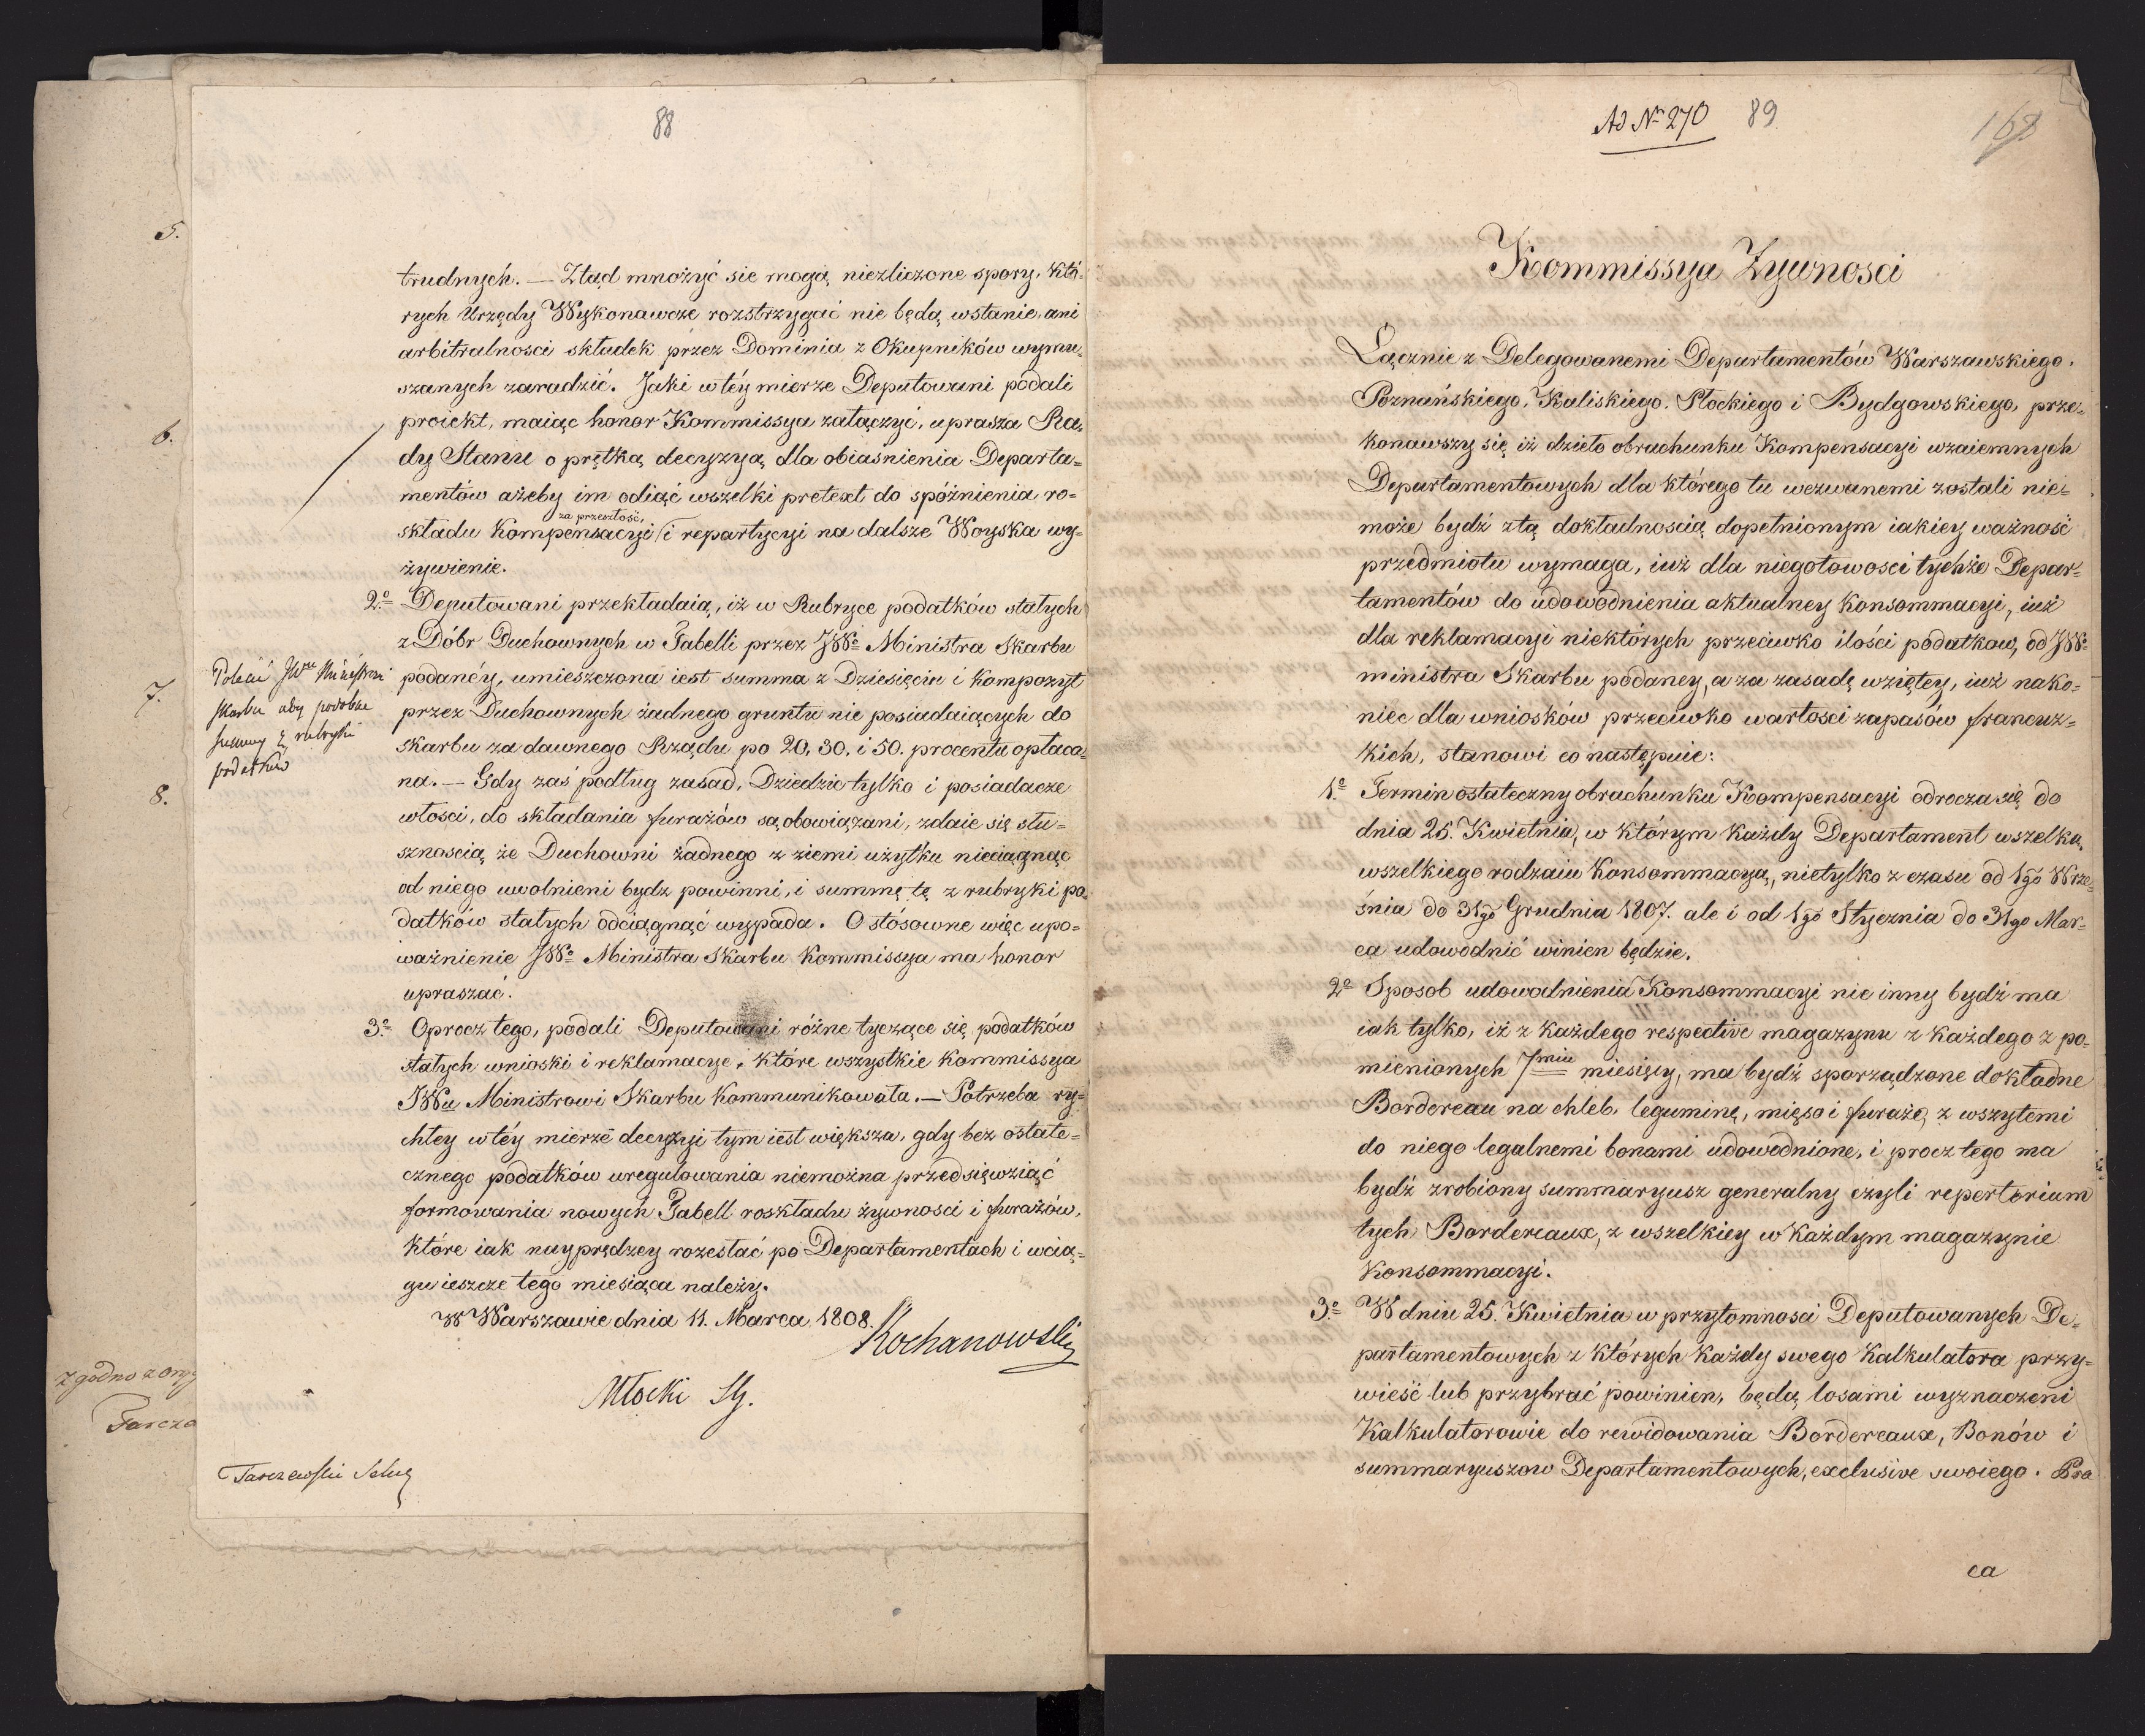 88
trudnych. — Ztąd mnożyć sie mogą niezliczone spory, któ=
rych Urzędy Wykonawcze rozstrzygać nie będą wstanie, ani
arbitralnosci składek przez Dominia z Okupników wymu=
szanych zaradzić. Jaki w téy mierze Deputowani podali
proiekt, maiąc honor Kommissya załączyć, uprasza Ra=
dy Stanu o prętką decyzyą dla obiasnienia Departa=
mentów ażeby im odiąć wszelki pretext do spóźnienia ro=
za przeszłość,
składu Kompensacyi i repartycyi na dalsze Woyska wy=
żywienie.
2o Deputowani przekładaią, iż w Rubryce podatków stałych
z Dóbr Duchownych w Tabelli przez JWo Ministra Skarbu
podanéy, umieszczona iest summa z Dziesięcin i kompozyt
przez Duchownych żadnego gruntu nie posiadaiących do
skarbu za dawnego Rządu po 20, 30, i 50. procentu opłaca=
na. — Gdy zaś podług zasad, Dziedzic tylko i posiadacze
włosci, do składania furażów są obowiązani, zdaie się słu=
sznoscią że Duchowni żadnego z ziemi użytku nieciągnąc
od niego uwolnieni bydz powinni, i summę tę z rubryki po=
datków stałych odciągnąć wypada. O stósowne więc upo=
ważnienie JWo Ministra Skarbu Kommissya ma honor
upraszać.
3o Oprocz tego, podali Deputowani różne tyczące się podatków
stałych wnioski i reklamacye, które wszystkie Kommissya
JWu Ministrowi Skarbu Kommunikowała. — Potrzeba ry=
chłey w téy mierze decyzyi tym iest większa, gdy bez ostate=
cznego podatków uregulowania niemożna przedsięwziąć
formowania nowych Tabell roskładu żywnosci i furażów,
które iak nayprędzey rozesłać po Departamentach i wcią=
gu ieszcze tego miesiąca należy.
W Warszawie dnia 11. Marca 1808.
Kochanowski
Młocki Sg.
Tarczewski
5.
6.
7.
8.
Polecić JWu Ministrowi
skarbu aby podobne
summy z rubryki
podatków
zgodno z ory
Tarcze
Ad No 270 89
168
Kommissya Zywnosci
Łącznie z Delegowanemi Departamentów Warszawskiego.
Poznańskiego, Kaliskiego. Płockiego i Bydgowskiego, prze=
konawszy się iż dzieło obrachunku Kompensacyi wzaiemnych
Departamentowych dla którego tu wezwanemi zostali nie=
może bydź ztą dokładnoscią dopełnionym iakiey ważność
przedmiotu wymaga, iuż dla niegotowosci tychże Depar=
tamentów do udowodnienia aktualney konsommacyi, iuż
dla reklamacyi niektórych przeciwko ilości podatkow, od JWo
ministra Skarbu podaney, a za zasadę wziętey, iuż nako=
niec dla wniosków przeciwko wartosci zapasów francuz=
kich, stanowi co następuie:
1o Termin ostateczny obrachunku Kompensacyi odrocza się do
dnia 25. Kwietnia, w którym każdy Departament wszelką,
wszelkiego rodzaiu Konsommacyą, nietylko z czasu od 1go Wrze=
śnia do 31go Grudnia 1807. ale i od 1go Stycznia do 31go Mar=
ca udowodnić winien będzie.
2o Sposob udowodnienia Konsommacyi nie inny bydź ma
iak tylko, iż z każdego respective magazynu z każdego z po=
mienionych 7miu miesięcy, ma bydź sporządzone dokładne
Bordereau na chleb, leguminę, mięso i furaże, z wszytemi
do niego legalnemi bonami udowodnione, i procz tego ma
bydź zrobiony summaryusz generalny czyli repertorium
tych Bordereaux, z wszelkiey w każdym magazynie
Konsommacyi.
3o W dniu 25. Kwietnia w przytomnosci Deputowanych De=
partamentowych z których każdy swego Kalkulatora przy=
wieść lub przybrać powinien, będą losami wyznaczeni
Kalkulatorowie do rewidowania Bordereaux, Bonów i
summaryuszow Departamentowych, exclusive swoiego. Pra
ca